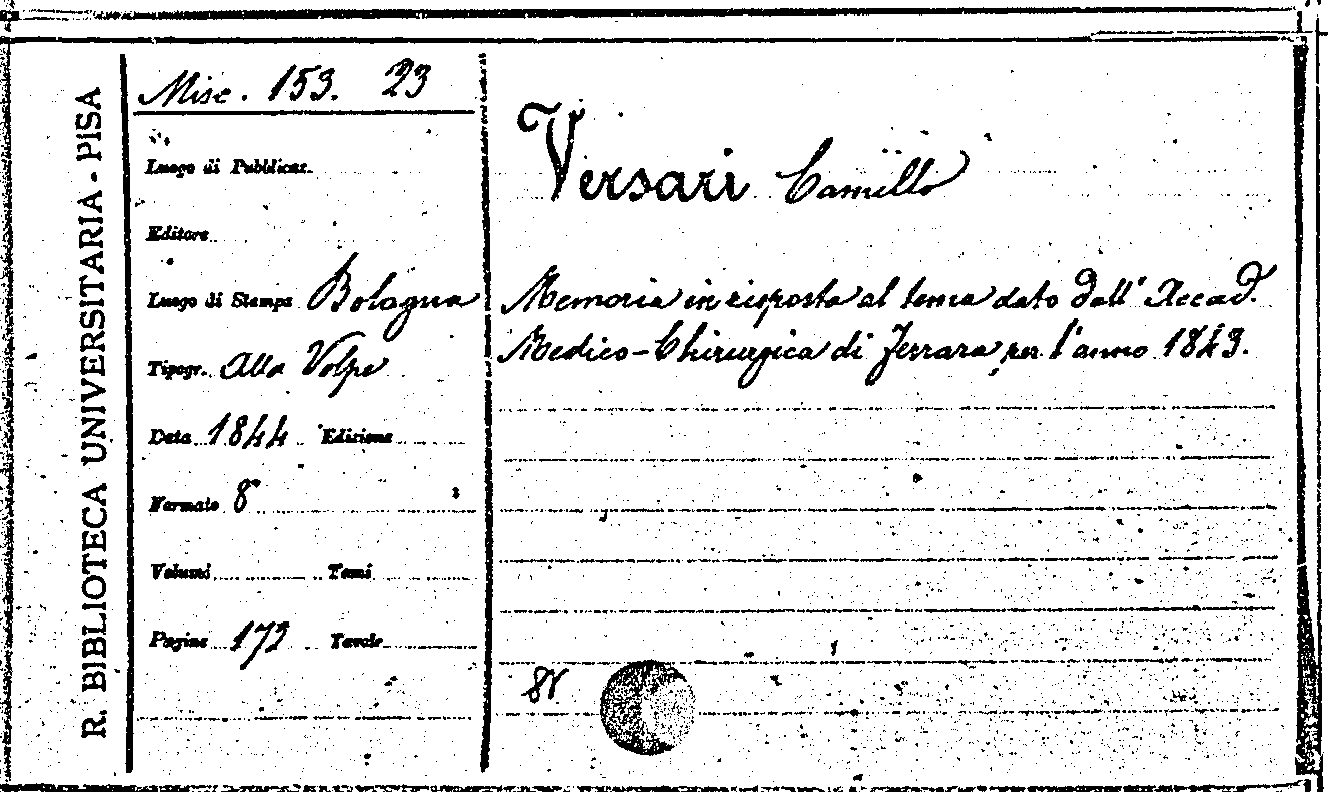 R. BIBLIOTECA UNIVERSITARIA - PISA
Misc. 153. 23
Luogo di Pubblicaz.
Editore
Luogo di Stampa Bologna
Tipogr. Alla Volpe
Data 1844 Edizione
Formato 8°
Volumi Tomi
Pagine 172 Tavole
Versari Camillo
Memoria in risposta al tema dato dall' Accad.
Medico-Chirurgica di Ferrara per l'anno 1843.